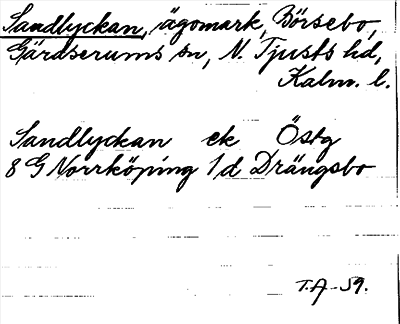 Sandlyckan, ägomark, Börsebo,
Gärdserums sn, N. Tjusts hd,
Kalm. l.
Sandlyckan ek Östg
8 G Norrköping 1 d Drängsbo
T.A -59.